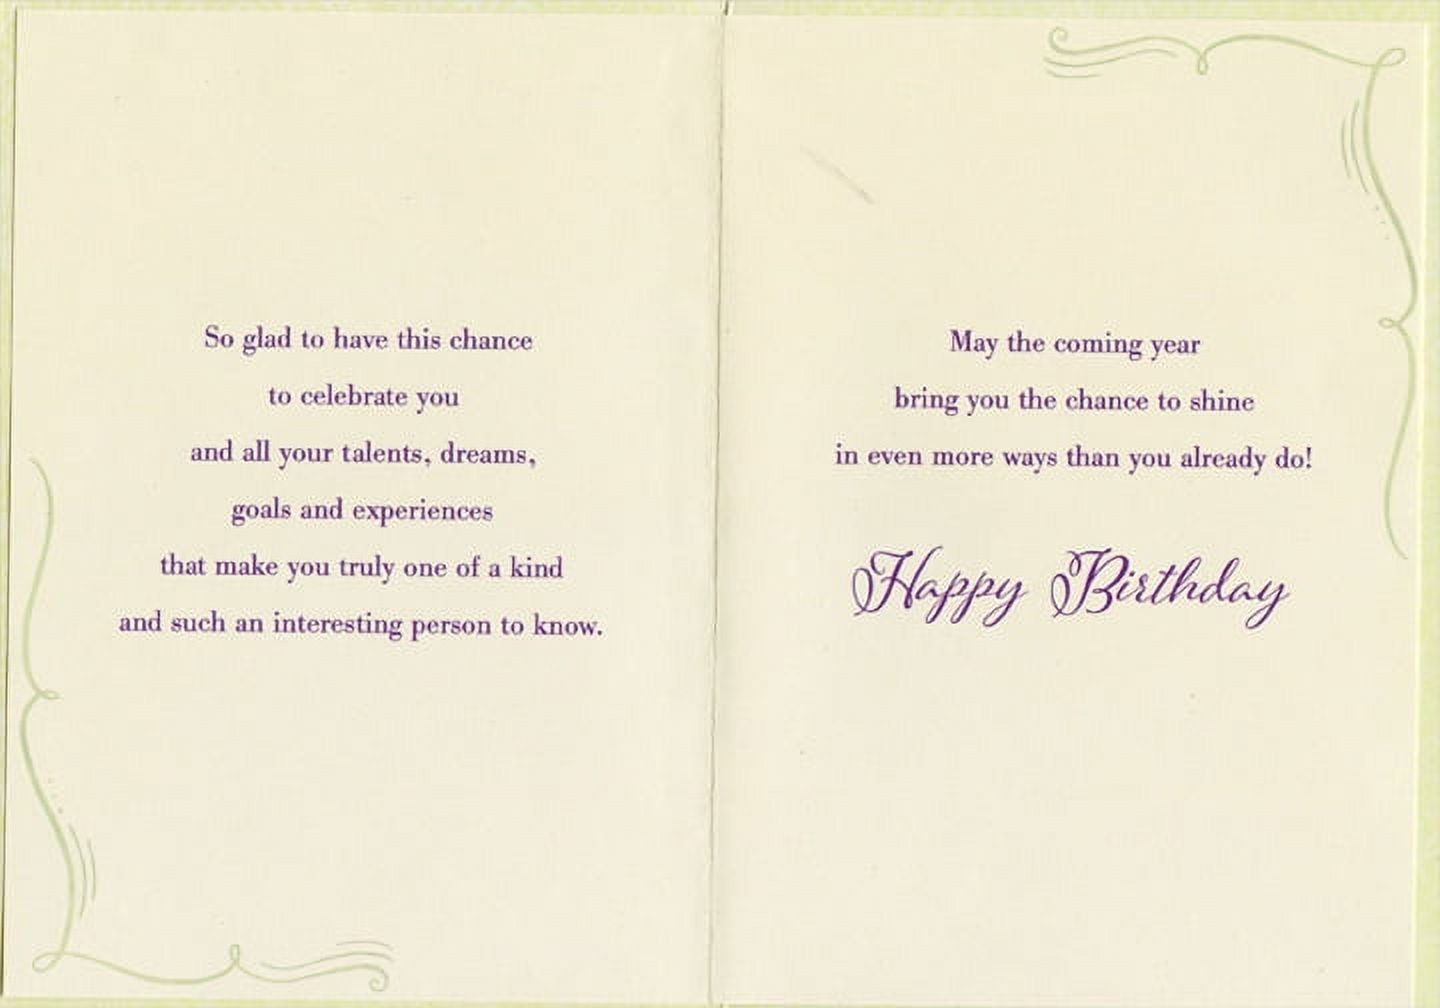 So glad to have this chance
to celebrate you
and all your talents, dreams,
goals and experiences
that make you truly one of a kind
and such an interesting person to know.
May the coming year
bring you the chance to shine
in even more ways than you already do!
Happy Birthday